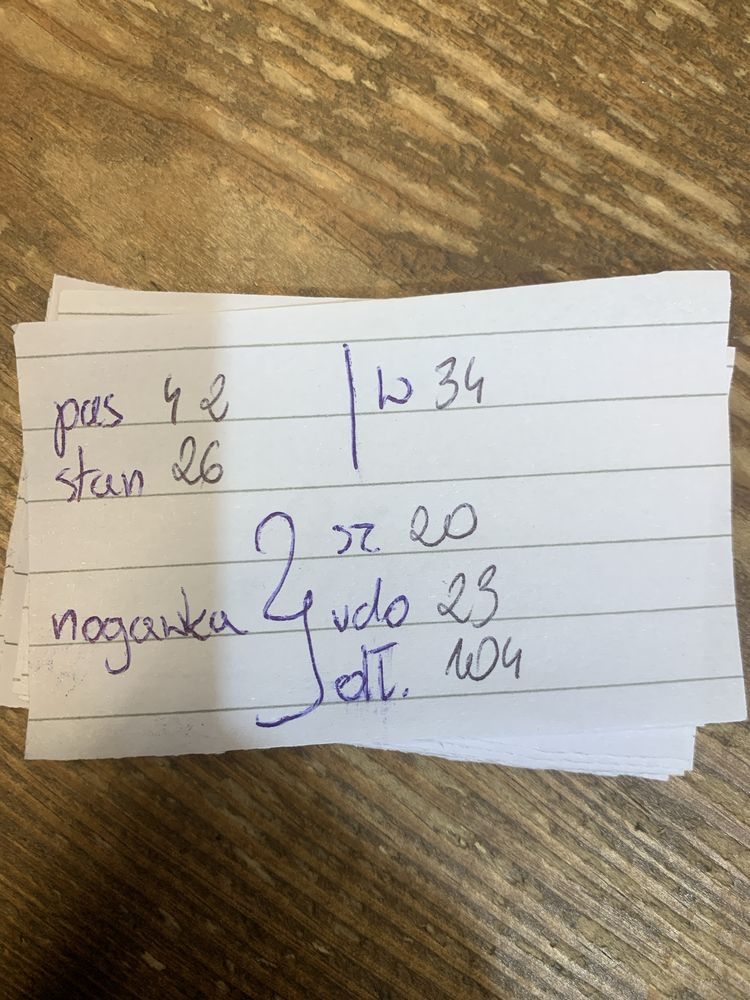 pas 42 | W 34
stan 26
sz 20
nogawka udo 23
dł. 104